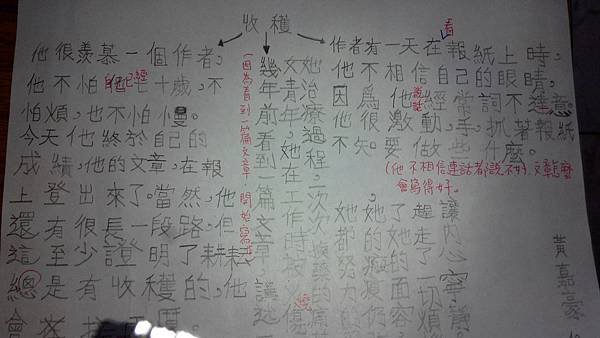 收穫
作者有一天在看報紙上時,
他不相信自己的眼睛,
因為他說話經常詞不達意。
他很激動,手抓著報紙
不知要做些什麼。
(他不相信連話都說不好,文章怎麼
會寫得好。
他很羨慕一個作者,
他不怕自己已經七十歲,不
怕煩,也不怕小
今天他終於自己的
成績,他的文章,在報
上登出來了。當然,他
還有很長一段路,但
這至少證明了耕耘
總是有收穫的,他
會
(因為看到一篇文章 開始寫作
幾年前看到一篇文章
文青年,她在工作時被
她治療過程,一次次
她都努力
她的疤痕仍
了她的面容,
起走了一切煩
讓內心寧靜。
黃嘉豪